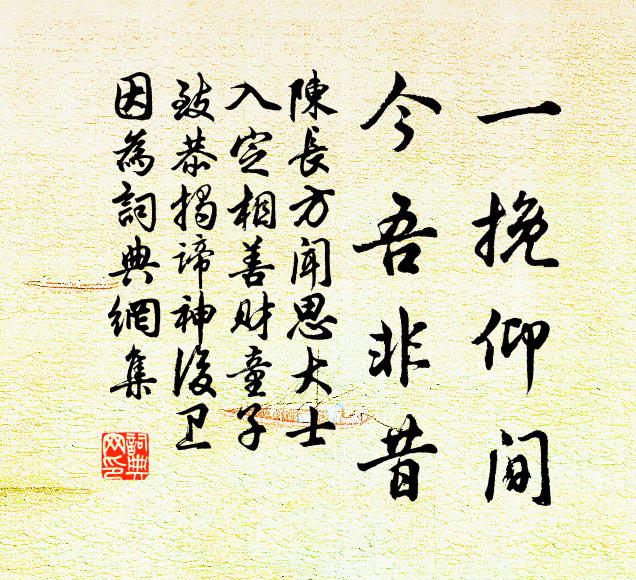 一挽仰间
今吾非昔
陳長方闻思大士
入定相善财童子
致恭揭谛神後卫
因為詞典網集
詞典网印